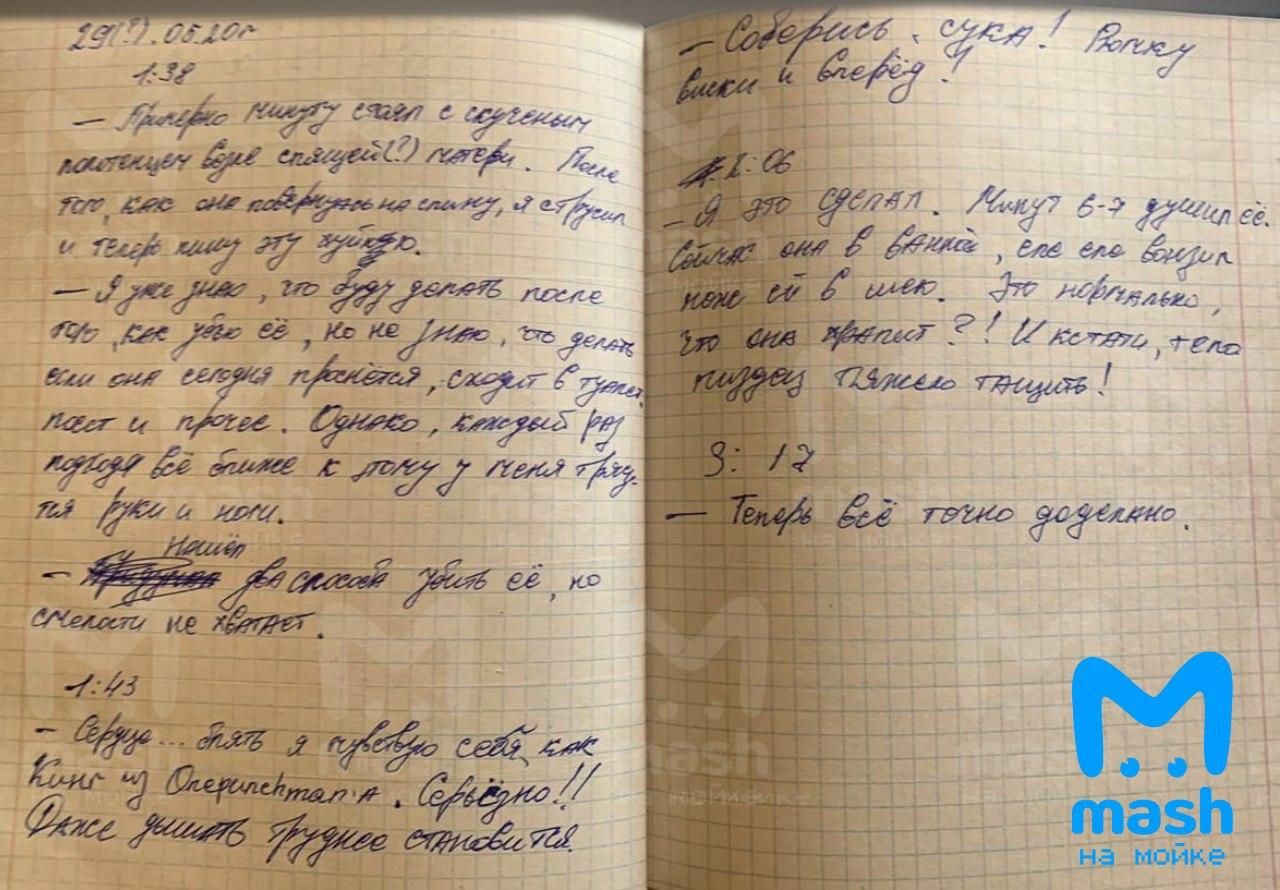 29(?).06.20г
1:38
— Примерно минуту стоял с скученым
полотенцем возле спящей(?) матери. После
того, как она повернулась на спину, я струсил
и теперь пишу эту хуйню.
— Я уже знаю, что буду делать после
того, как убью её, но не знаю, что делать
если она сегодня проснётся, сходит в туалет
поест и прочее. Однако, каждый раз
подходя всё ближе к этому у меня трясу-
тся руки и ноги.
Нашёл
— два способа убить её, но
смелости не хватает.
1:43
— Сердце... блять я чувствую себя, как
Кинг из Onepunchman'а. Серьёзно!!
Даже дышать труднее становится.
— Соберись, сука! Рюмку
виски и вперёд!
2:06
— Я это сделал. Минут 6-7 душил её.
Сейчас она в ванной, еле еле вонзил
нож ей в шею. Это нормально,
что она храпит?! И кстати, тело
пиздец тяжело тащить!
3:17
— Теперь всё точно доделано.
mash
на мойке